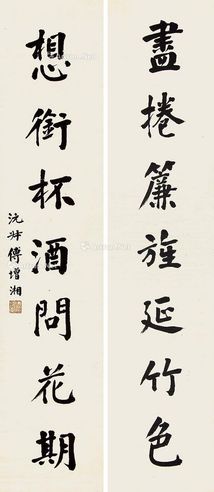 盡捲簾旌延竹色
想銜杯酒問花期
沅叔傅增湘